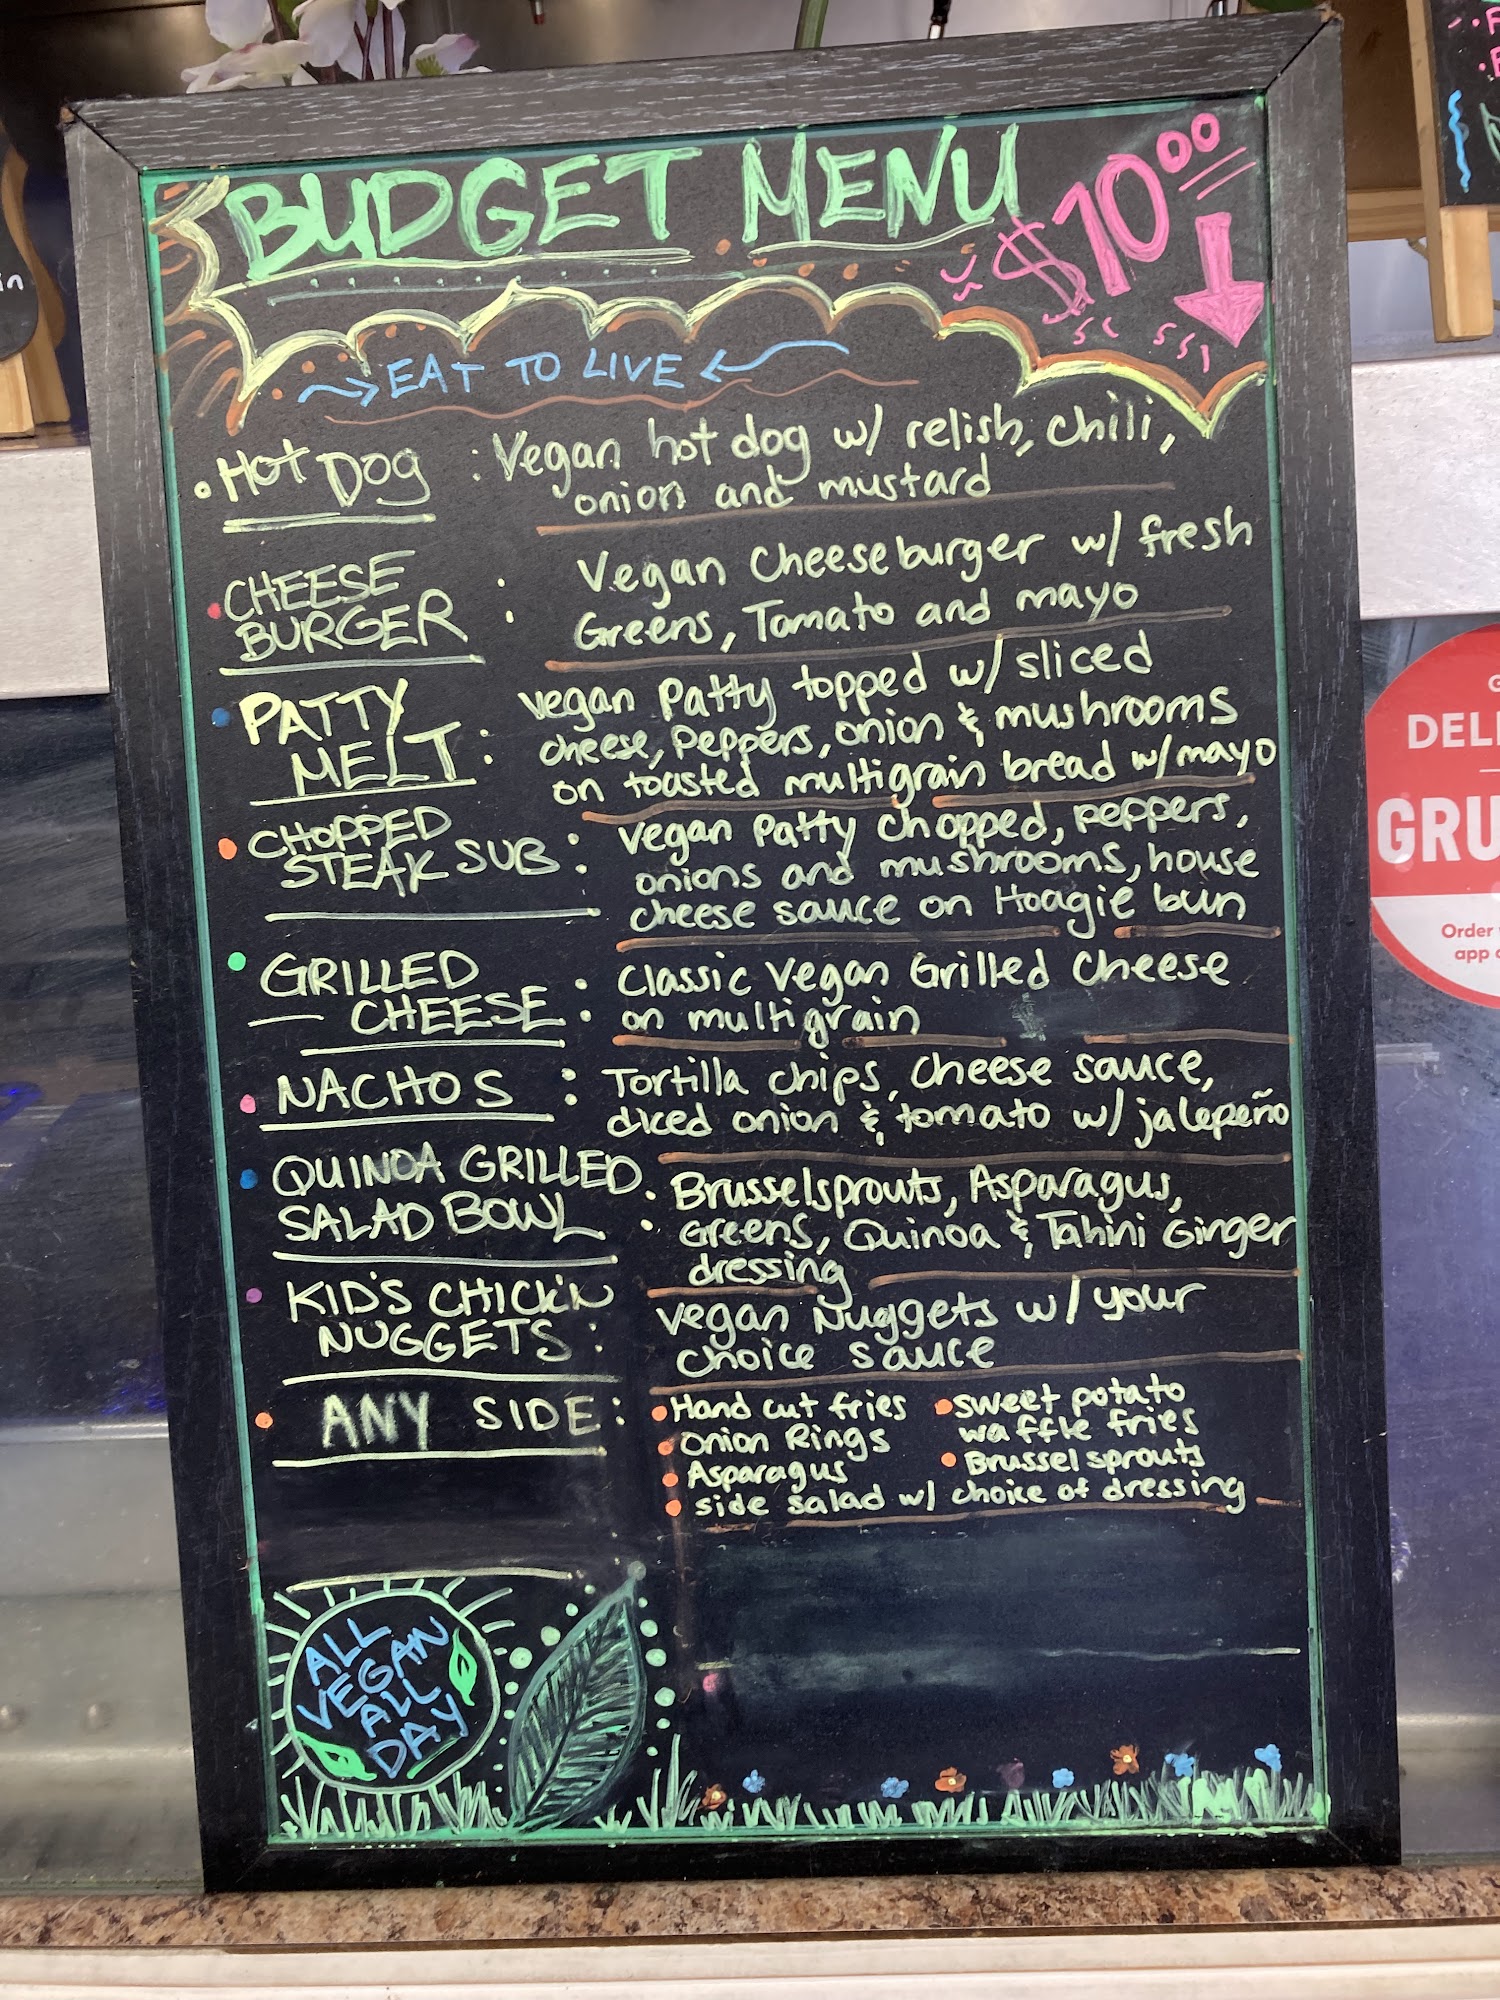 BUDGET MENU $10.00
EAT TO LIVE
HOT DOG : Vegan hot dog w/ relish, chili,
onion and mustard
CHEESE BURGER : Vegan Cheeseburger w/ fresh
Greens, Tomato and mayo
PATTY MELT : vegan Patty topped w/ sliced
cheese, peppers, onion & mushrooms
on toasted multigrain bread w/ mayo
CHOPPED STEAK SUB : vegan Patty chopped, peppers,
onions and mushrooms, house
cheese sauce on Hoagie bun
GRILLED CHEESE : Classic Vegan Grilled Cheese
on multigrain
NACHOS : Tortilla chips, cheese sauce,
diced onion & tomato w/ jalepeño
QUINOA GRILLED SALAD BOWL : Brusselsprouts, Asparagus,
Greens, Quinoa & Tahini Ginger
dressing
KID'S CHICK'N NUGGETS : vegan Nuggets w/ your
choice sauce
ANY SIDE : Hand cut fries
Onion Rings
Asparagus
sweet potato
waffle fries
Brussel sprouts
side salad w/ choice of dressing
ALL
VEGAN
ALL
DAY
DEL
GRU
Order
app
in